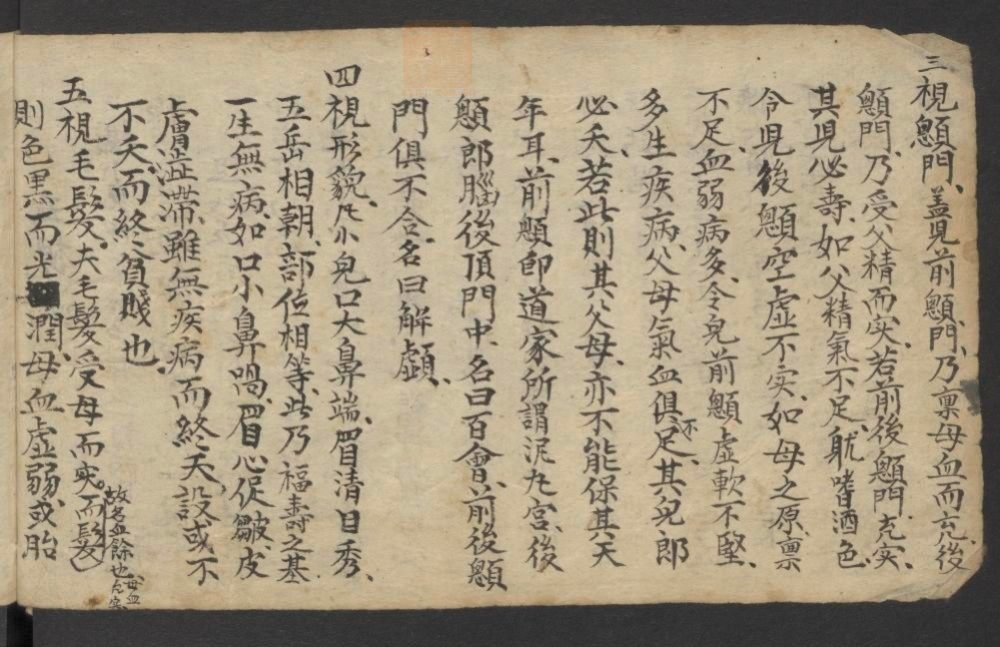 三視顖門、蓋児前顖門、乃禀母血而充、後
顖門、乃受父精而実、若前後顖門充実、
其児必壽、如父精氣不足、躭嗜酒色、
令児後顖空虚不实、如母之原禀
不足、血弱病多、令兒前顖虚軟不堅、
多生疾病、父母氣血俱不足、其兒郎
必夭、若此則其父母、亦不能保其天
年耳、前顖即道家所謂泥丸宮、後
顖郎腦後頂門中、名曰百會、前後顖
門俱不合、名曰解顱、
四視形貌、凡小兒口大鼻端、眉清目秀、
五岳相朝、部位相等、此乃福壽之基
一生無病、如口小鼻喎、眉心促皺、皮
膚澁滞、雖無疾病而終夭、設或不
不夭、而終貧賤也、
五視毛髮、夫毛髮受母而实、而髮
故名血餘也、母血
充实
則色黒而光潤、母血虚弱、或胎